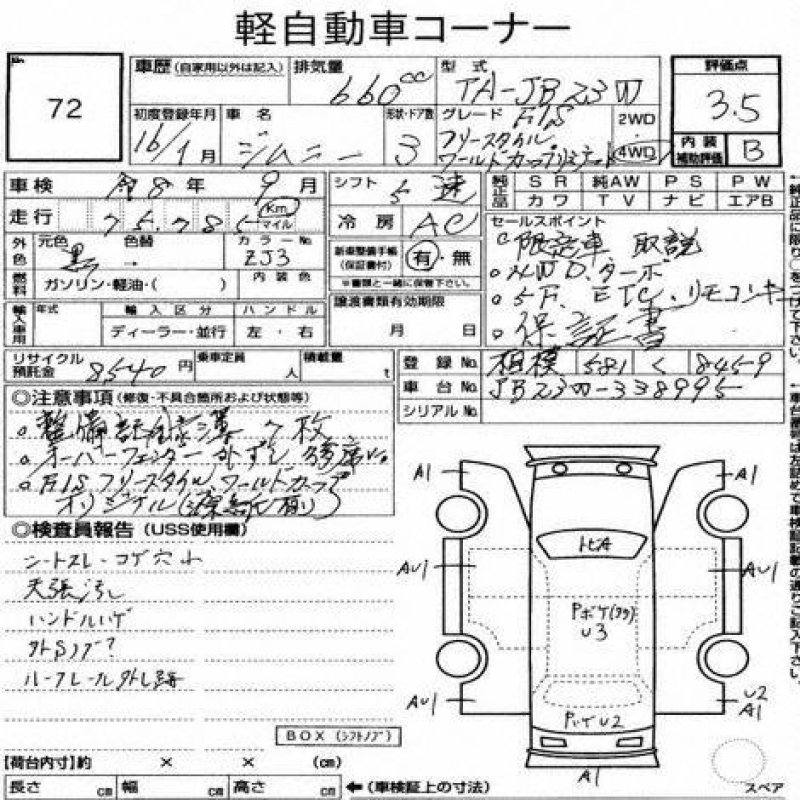 軽自動車コーナー
72
車歴 (自家用以外は記入) 排気量 660cc
型式 TA-JB23W
評価点 3.5
初度登録年月 16/1月 車名 ジムニー
形状・ドア数 3
グレード FIS フリースタイル
ワールドカップリミテッド
2WD
4WD
内装補助評価 B
車検 令8年 9月
シフト 5速
純正品 SR 純AW PS PW
カワ TV ナビ エアB
走行 75,785 Km マイル
冷房 AC
外色 元色 黒 色替 → カラーNo ZJ3
新車整備手帳 (保証書付) 有・無
※書類と一緒に保管下さい。
セールスポイント
限定車 取説
4WD、ターボ
5F、ETC、リモコンキー
保証書
燃料 ガソリン・軽油・( ) 内装色
譲渡書類有効期限
月 日
輸入車用 年式 輸入区分 ハンドル
ディーラー・並行 左・右
リサイクル預託金 8540円 乗車定員 人 積載量 t
登録No. 相模 581 く 8459
車台No. JB23W-338995
シリアルNo.
◎注意事項 (修復・不具合箇所および状態等)
整備記録簿 7枚
オーバーフェンダー外ずし
FISフリースタイル ワールドカップ
オリジナル
◎検査員報告 (USS使用欄)
シートスレ・コゲ穴小
天張汚し
ハンドルハゲ
外Sノブ?
ルーフレール外し跡
BOX (シフトノブ)
【荷台内寸】約 × × (cm)
長さ cm 幅 cm 高さ cm
← (車検証上の寸法)
A1
A1
AU1
AU1
トビA
Pボケ(タタ)
U3
AU1
U2
A1
PハゲU2
A1
スペア
←純正品に限り○をつけて下さい。
←車台番号は方認めで車検証記載の通りご記入下さい。